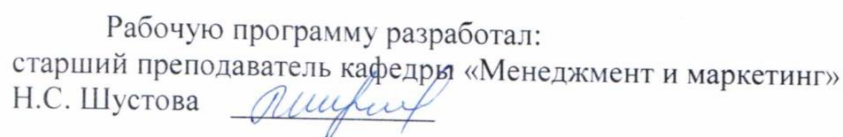 Рабочую программу разработал:
старший преподаватель кафедры «Менеджмент и маркетинг»
Н.С. Шустова